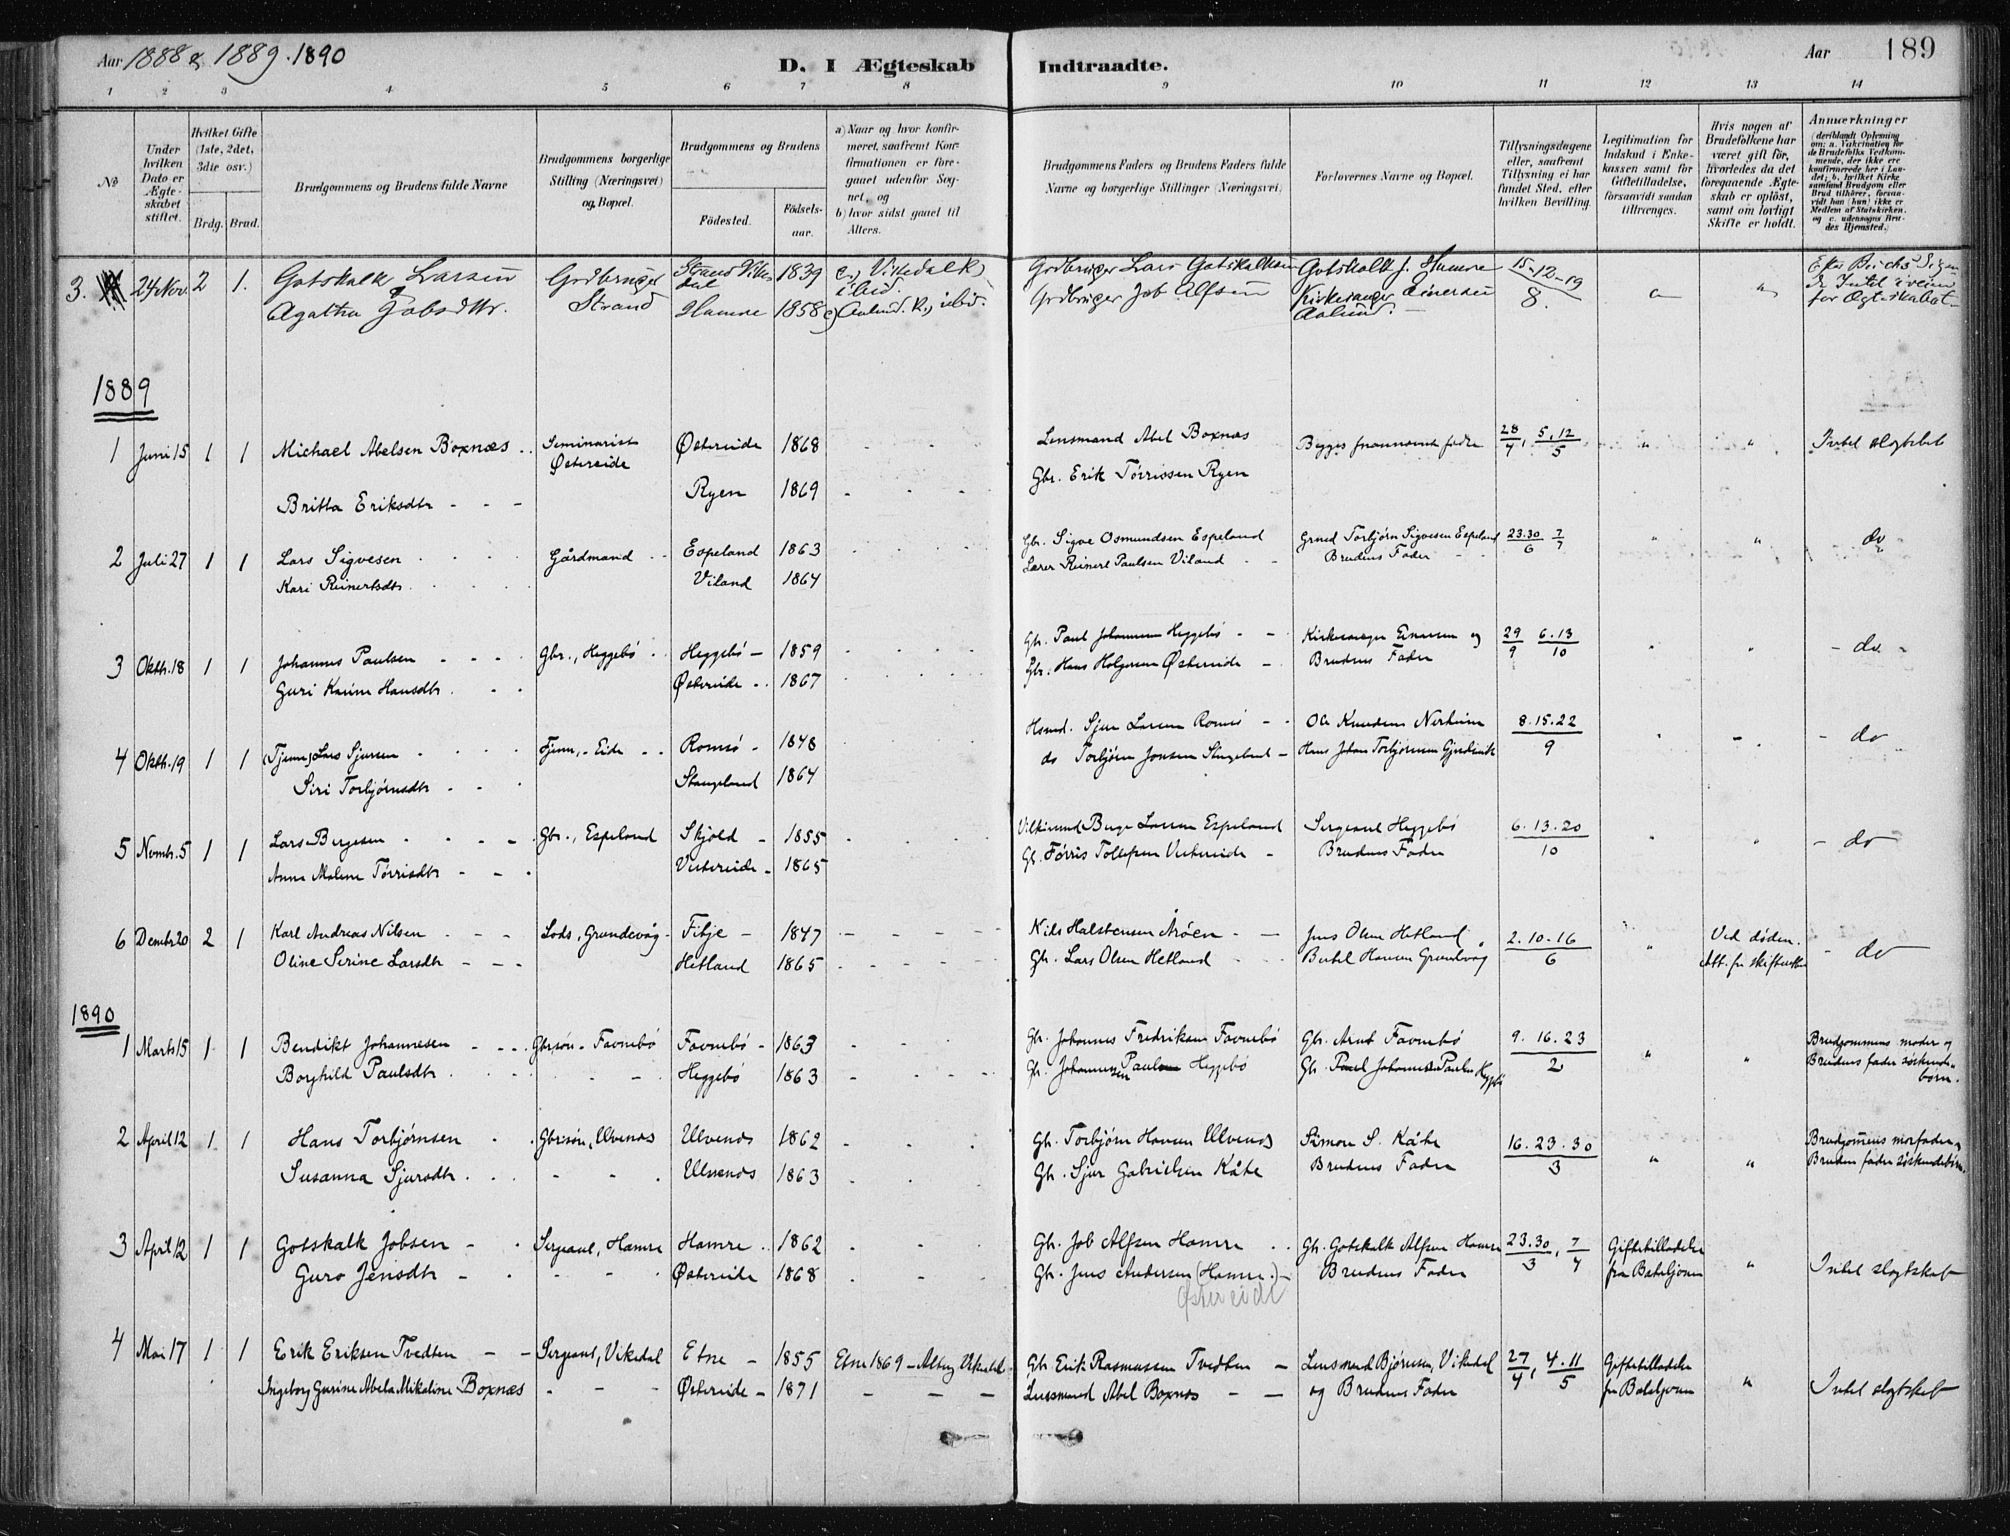 Aar 1888 & 1889. 1890
D. I Ægteskab Indtraadte.
Aar 189
1 2 3 4 5 6 7 8 9 10 11 12 13 14
No
Under hvilken Dato er Ægteskabet stiftet.
Hvilket Gifte (1ste, 2det, 3die osv.)
Brdg. Brud.
Brudgommens og Brudens fulde Navne
Brudgommens borgerlige Stilling (Næringsvei) og Bopæl.
Brudgommens og Brudens
Födested. Födselsaar.
a) Naar og hvor konfirmeret, saafremt Konfirmationen er foregaaet udenfor Sognet, og
b) hvor sidst gaaet til Alters.
Brudgommens Faders og Brudens Faders fulde Navne og borgerlige Stillinger (Næringsvei)
Forlovernes Navne og Bopæl.
Tillysningsdagene eller, saafremt Tillysning ei har fundet Sted, efter hvilken Bevilling.
Legitimation for Indskud i Enkekassen samt for Giftetilladelse, forsaavidt saadan tiltrænges.
Hvis nogen af Brudefolkene har været gift för, hvorledes da det foregaaende Ægteskab er oplöst, samt om lovligt Skifte er holdt.
Anmærkninger (deriblandt Oplysning om: a. Vakcination for de Brudefolks Vedkommende, der ikke ere konfirmerede her i Landet; b. hvilket Kirkesamfund Brudgom eller Brud tilhörer, forsaavidt han (hun) ikke er Medlem af Statskirken, og c. udensogns Brudes Hjemsted.)
3. 24 Nov. 2 1. Gotskalk Larsen Gardbruger 1839 Vikedal K. Gardbruger Lars Gotskalksen Gotskalk J. Hamre 15-12-19
Agatha Jobsdtr. Strand Hamre 1858 ibid. Gardbruger Job Alfsen Kirkesanger Einersen 8.
1889
1 Juni 15 1 1 Michael Abelsen Boxnæs Seminarist Østereide Østereide 1868 Lensmand Abel Boxnæs Begges frannævnte fædre 28/4, 5.12/5 Intet slegtskab
Britta Eriksdtr Ryen 1869 Gbr. Erik Tørrissen Ryen
2 Juli 27 1 1 Lars Sigvesen Gårdmand Espeland 1863 Gbr. Sigve Osmundsen Espeland Grmd Torbjørn Sigvesen Espeland 23.30/6 7/7 do
Kari Reinertsdtr Viland 1864 Lærer Reinert Paulsen Viland Brudens Fader
3 Oktb. 18 1 1 Johannes Paulsen Gbr., Heggebö Heggebö 1859 Gbr. Paul Johannesen Heggebö Kirkesanger Einersen og 29/9 6.13/10 do.
Guri Karine Hansdtr Østereide 1867 Gbr. Hans Holgersen Østereide Brudens Fader
4 Oktb. 19 1 1 (Tjener) Lars Sjursen Tjener, Eide Romsö 1848 Hsmd. Sjur Larsen Romsö Ole Knudsen Nerheim 8.15.22/9 do
Siri Torbjørnsdtr Stangeland 1864 do Torbjørn Jonsen Stangeland Hans Johan Torbjørnsen Gjerdevik
5 Novmb. 5 1 1 Lars Bergesen Gbr., Espeland Skjold 1855 Berge Larsen Espeland Sergeant Heggebö 6.13.20/10 do
Anne Malene Tørrisdtr Vestereide 1865 Gb. Tørris Tollefsen Vestereide Brudens Fader
6 Dcmbr 20 2 1 Karl Andreas Nilsen Lods, Grundevåg Fitje 1847 Nils Halstensen Årøen Jens Olsen Hetland 2.10.16/6 Ved døden. do
Oline Serine Larsdtr Hetland 1865 Gb. Lars Olsen Hetland Bertel Hansen Grundevåg Att. fr skifteretten
1890
1 Marts 15 1 1 Bendikt Johannesen Gbrsön, Favnebö Favnebö 1863 Gbr. Johannes Fredriksen Favnebö Gbr. Arnt Favnebö 9.16.23/2 Brudgommens moder og
Borghild Paulsdtr Heggebö 1863 Gb. Johannessen Paul Heggebö Gb. Paul Johannes Paulsen Heggebö Brudens fader söskendebörn.
2 April 12 1 1 Hans Torbjørnsen Gbrsön, Ulvenes Ulvenes 1862 Gb. Torbjørn Hansen Ulvenes Simon S. Kåte 16.23.30/3 Brudgommens morfader og
Susanna Sjursdtr Ulvenes 1863 Gb. Sjur Gabrielsen Kåte Brudens Fader Brudens fader söskendebörn.
3 April 12 1 1 Gotskalk Jobsen Sergeant, Hamre Hamre 1862 Gb. Job Alfsen Hamre Gb. Gotskalk Alfsen Hamre 23.30/3, 7/4 Giftetilladelse fra Bataljonen Intet slegtskab
Guro Jensdtr Østereide 1868 Gb. Jens Andersen (Hamre) Østereide Brudens Fader
4 Mai 17 1 1 Erik Eriksen Tvedten Sergeant, Vikedal Etne 1855 Etne 1869 - Alterg. Vikedal Gb. Erik Rasmussen Tvedten Lensmand Bjørnsen, Vikedal 27/4, 4.11/5 Giftetilladelse fr Bataljonen Intet slegtskab
Ingeborg Gurine Abela Mikaline Boxnæs Østereide 1871 Lensmand Abel Boxnæs og Brudens Fader